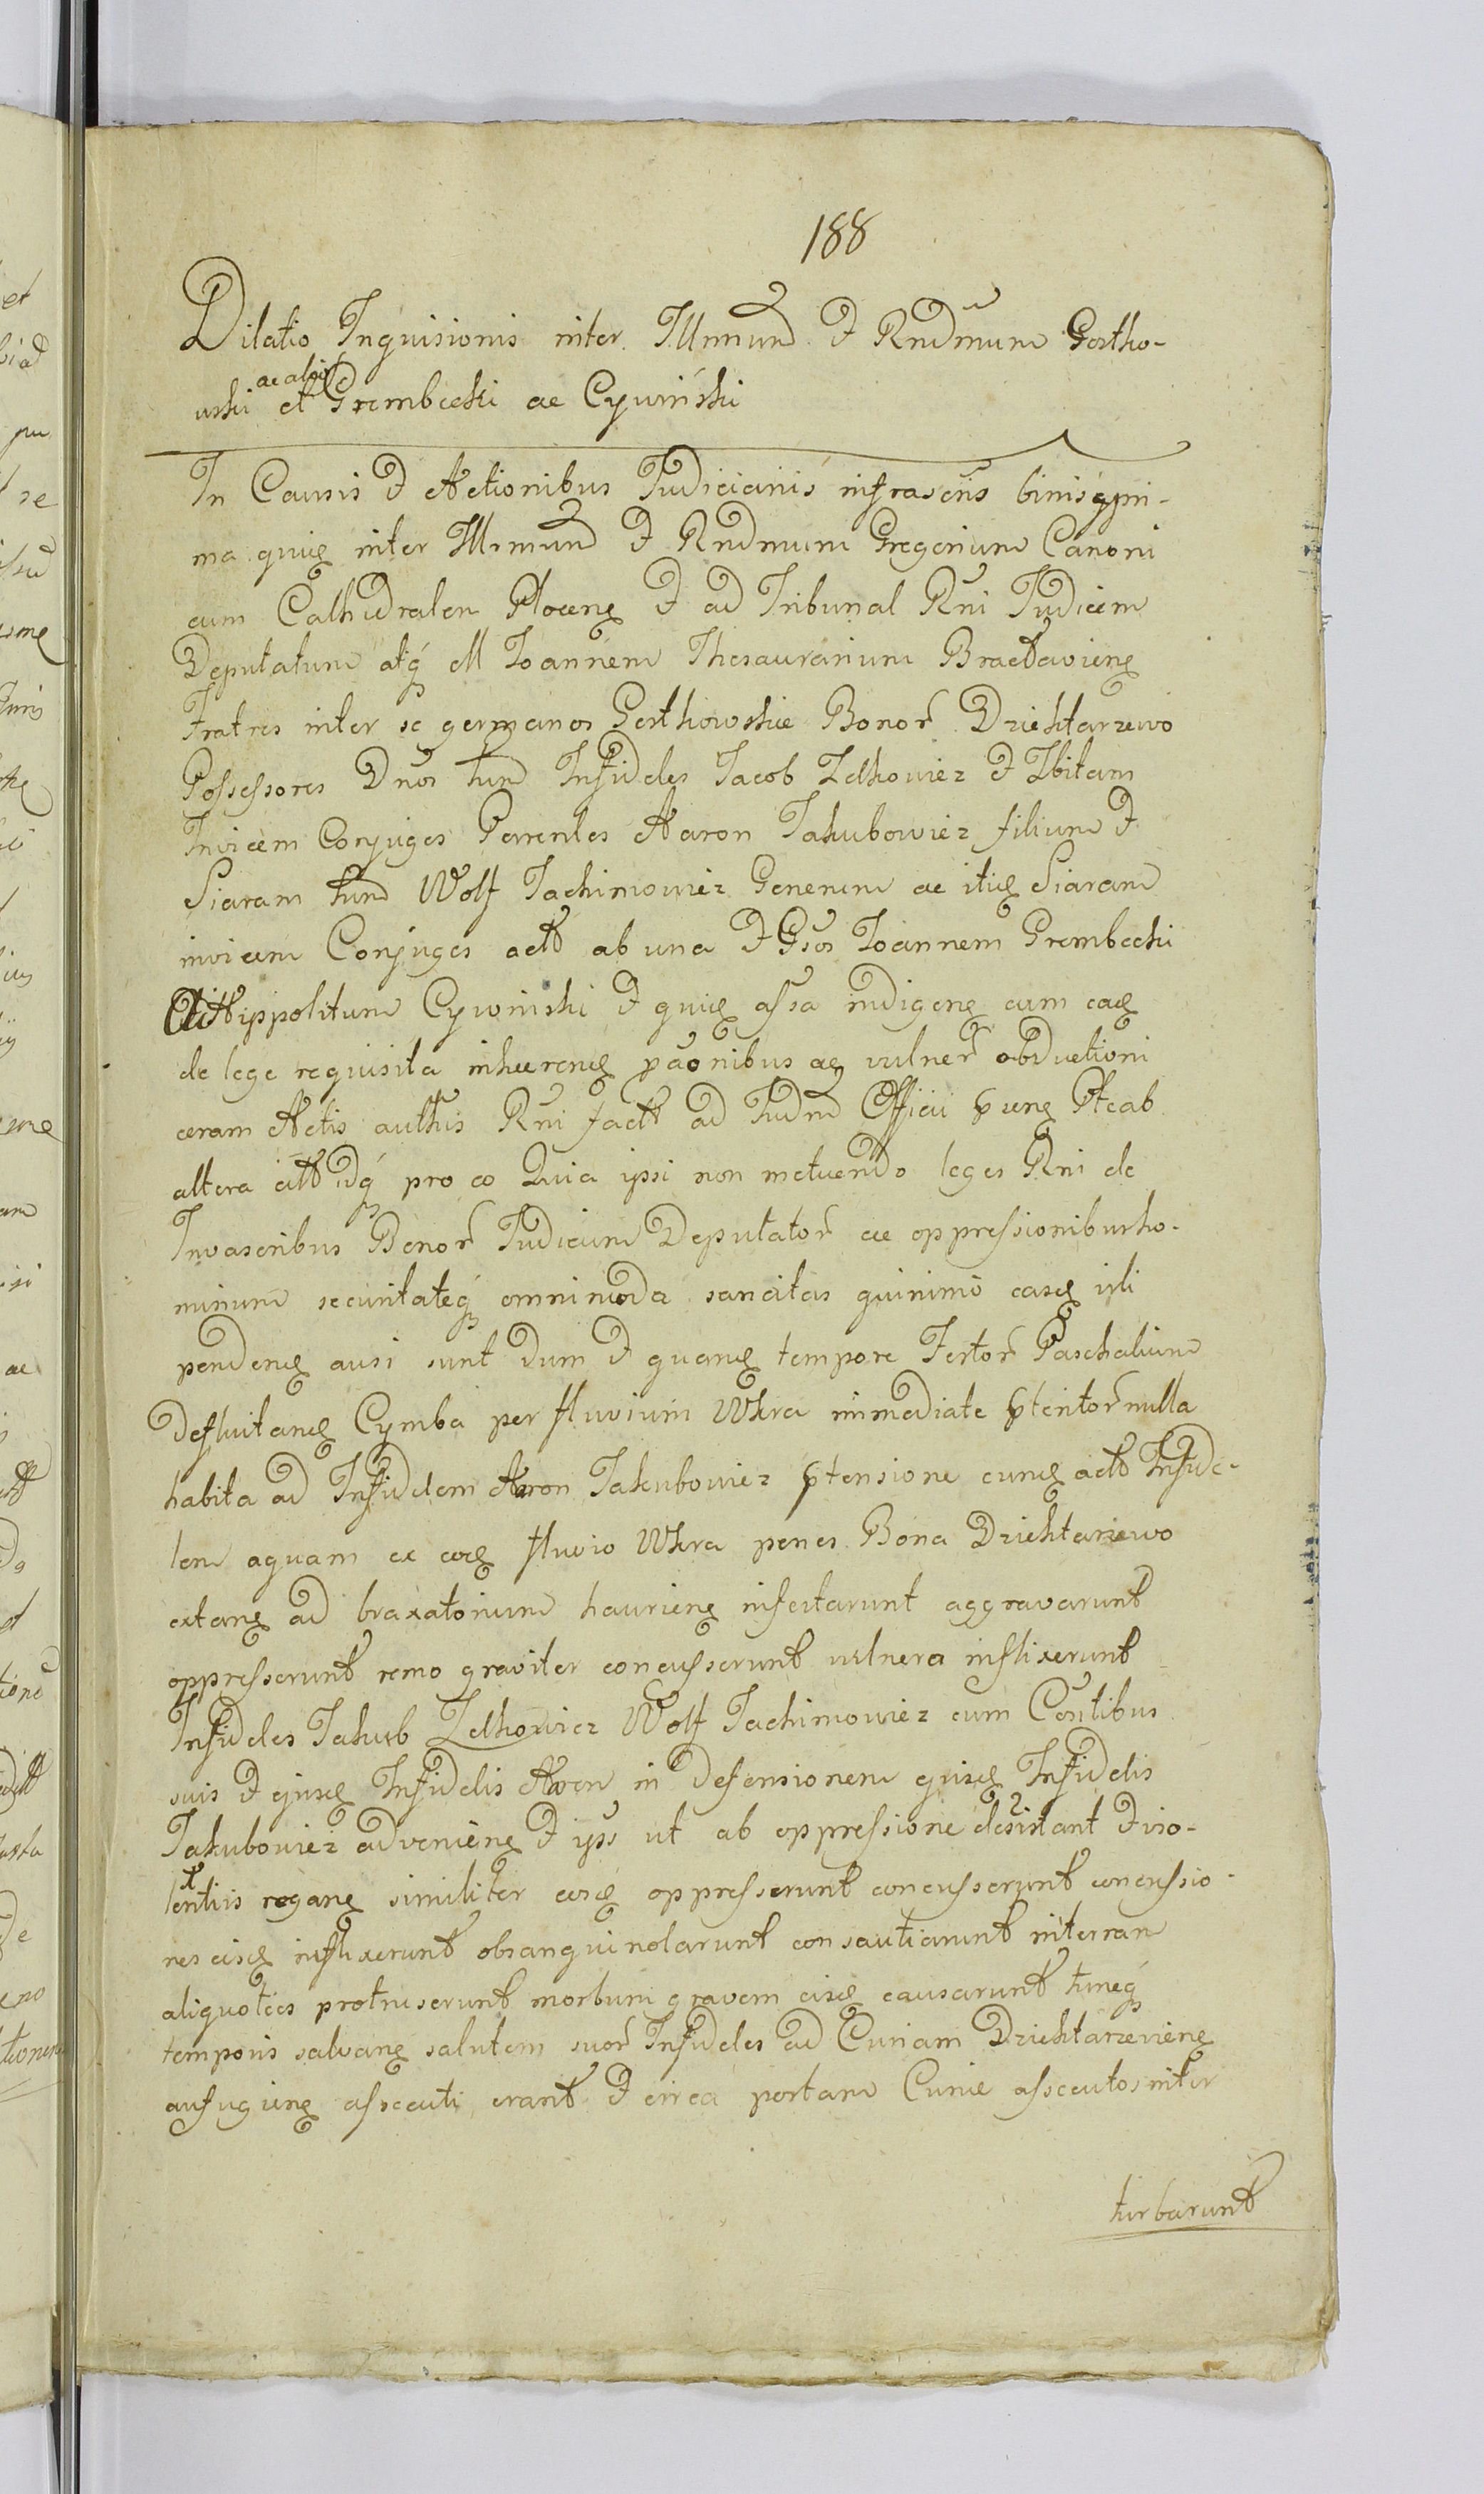 188
Dilatio Inquisionis inter Illmum & Rndmum Gosthko-
ac alios
wski et Grembecki ac Cywiński
In Causis & Actionibus Judiciariis infrascris binis qpri-
ma quię inter Illmum & Rndmum Gregorium Canoni
cum Cathedralem Plocenę & ad Tribunal Rni Judicem
Deputatum atq́ M Joannem Thesaurarium Bracłavienę
Fratres inter se germanos Gosthowskie Bonoř Dziektarzewo
Possessores Dnos tum Infideles Jacob Zelkowicz &
Invicem Conjuges Parentes Aaron Jakubowicz filium &
Siaram tum Wolf Jachimowicz Generum ac Siaram
invicem Conjuges actt ab una & Gsos Joannem Grembecki
Hippolitum Cywinski & quię assa indigenę cum eaę
de lege requisita inhærenę pãonibus aę vulneř obductioni
coram Actis authis Rni factt ad Judm Officii Pteab
altera citt idq́ pro eo Quia ipsi non metuendo leges Rni de
Invasoribus Bonoř Judicum Deputatoř ac oppressionibusho-
minum securitateq́ omnimoda sancitas quinimo easę vili
pendenę ausi sunt dum & quanę tempore Festoř Paschalium
defluitanę Cymba per fluvium Wkra immediate nulla
habita ad Infidelem Aaron Jakubowicz ptensione eunę actt Infide-
lem aquam ex eoę fluvio Wkra penes Bona Dziektarzewo
extanę ad braxatorium haurienę infestarunt aggravarunt
oppresserunt remo graviter concusserunt vulnera inflixerunt
Infideles Jakub Zelkowicz Wolf Jachimowicz cum Cosortibus
suis & ejusę Infidelis Aaron in defensionem ejusę Infidelis
Jakubowicz advenienę & ipss ut ab oppressione desistant & vio-
lentiis roganę similiter eosę oppresserunt concusserunt concussio-
nes eisę inflixerunt obsanguinolarunt consautiarunt interram
aliquoties protruserunt morbum gravem eisę causarunt tuneq́
temporis salvanę salutem suoř Infideles ad Curiam Dziektarzevienę
aufugienę assecuti erant & circa portam Curiæ assecutos niter
turbarunt